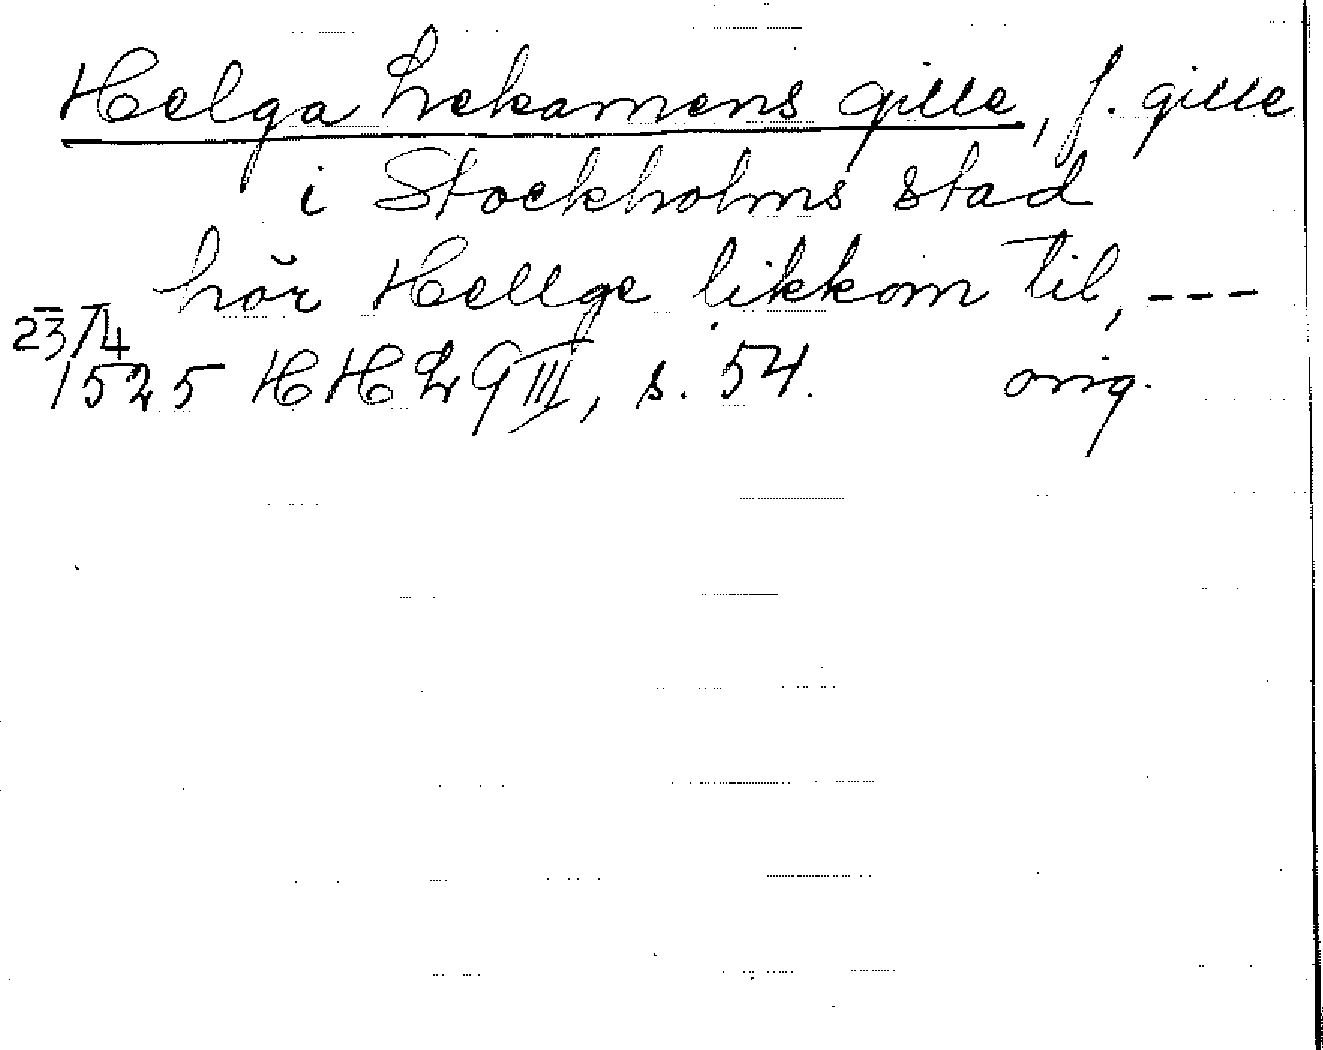 Helga Lekamens gille, f. gille
i Stockholms stad
hör Hellge likkom til, ---
23/4
1525 HHL 9 III, s. 54. orig.